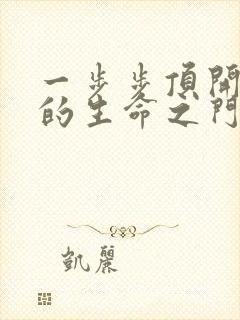 一步步頂開
的生命之門
凱麗